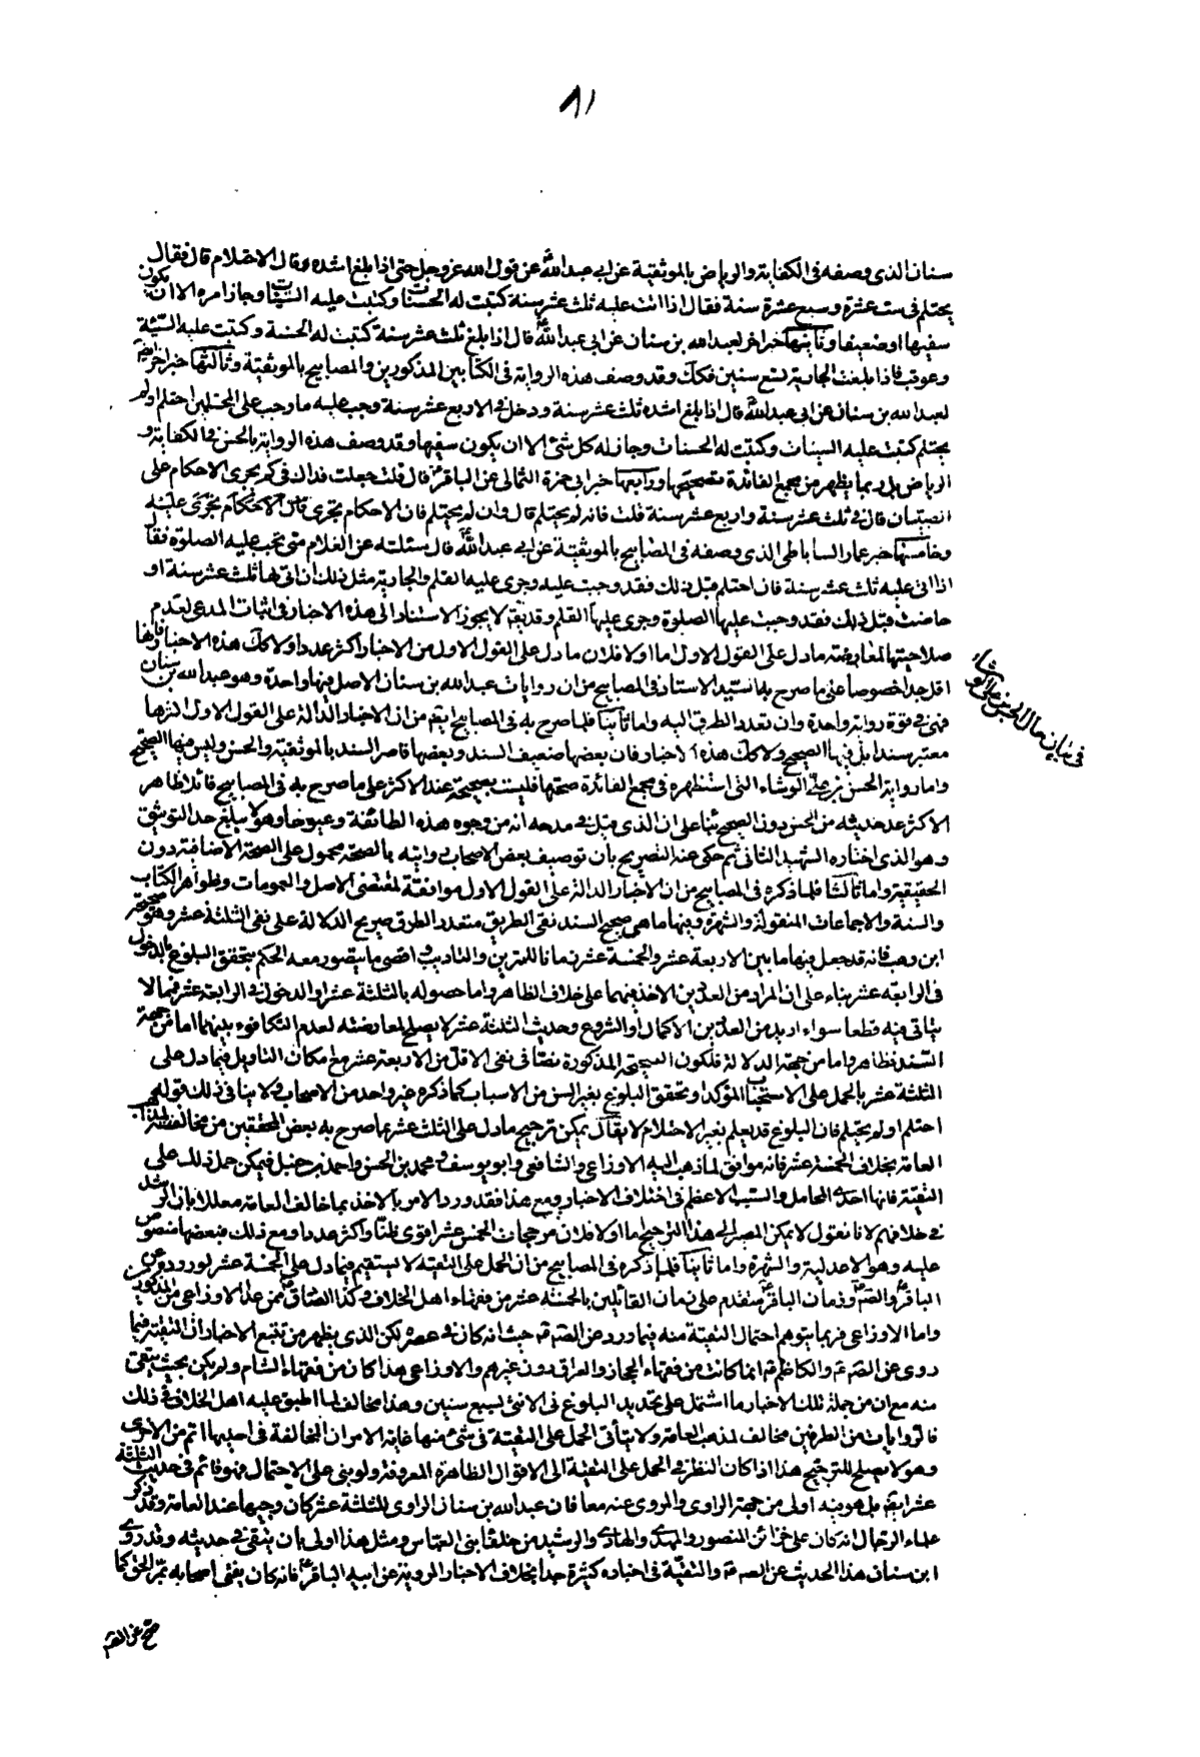 ٨١
سنان الذى وصفه فى الكفاية والرياض بالموثقية عن ابى عبد الله عن قول الله عز وجل حتى اذا بلغ اشده قال الاحتلام قال فقال
يحتلم فى ست عشرة وسبع عشرة سنة فقال اذا اتت عليه ثلث عشر سنة كتبت له الحسنات وكتبت عليه السيئات وجاز امره الا ان يكون
سفيها او ضعيفا وثانيها خبر اخر لعبد الله بن سنان عن ابى عبد الله قال اذا بلغ ثلث عشر سنة كتبت له الحسنة وكتبت عليه السيئة
وعوقب فاذا بلغت الجارية تسع سنين فكك وقد وصف هذه الرواية فى الكتابين المذكورين والمصابيح بالموثقية وثالثها خبر اخر ايضا
لعبد الله بن سنان عن ابى عبد الله قال اذا بلغ اشده ثلث عشر سنة ودخل فى الاربع عشر سنة وجب عليه ما وجب على المحتلمين احتلم او لم
يحتلم كتبت عليه السيئات وكتبت له الحسنات وجاز له كل شئ الا ان يكون سفيها وقد وصف هذه الرواية بالحسن فى الكفاية و
الرياض بل ربما يظهر من مجمع الفائدة تصحيحها ورابعها خبر ابى حمزة الثمالى عن الباقر قال قلت جعلت فداك فى كم يجرى الاحكام على
الصبيان قال فى ثلث عشر سنة واربع عشر سنة قلت فانه لم يحتلم قال وان لم يحتلم فان الاحكام تجرى عليه
وخامسها خبر عمار الساباطى الذى وصفه فى المصابيح بالموثقية عن ابى عبد الله قال سئلته عن الغلام متى يجب عليه الصلوة فقال
اذا اتى عليه ثلث عشر سنة فان احتلم قبل ذلك فقد وجبت عليه وجرى عليه القلم والجارية مثل ذلك ان اتى لها ثلث عشر سنة او
حاضت قبل ذلك فقد وجبت عليها الصلوة وجرى عليها القلم وقد يقال لا يجوز الاستناد الى هذه الاخبار فى اثبات المدعى لعدم
صلاحيتها لمعارضة ما دل على القول الاول اما اولا فلان ما دل على القول الاول من الاخبار اكثر عددا ولا كك هذه الاخبار فانها
اقل جدا خصوصا على ما صرح به السيد الاستاد فى المصابيح من ان روايات عبد الله بن سنان الاصل فيها واحدة وهو عبد الله بن سنان
فهى فى قوة رواية واحدة وان تعدد الطرق اليه واما ثانيا فلما صرح به فى المصابيح ايضا من ان الاخبار الدالة على القول الاول اكثرها
معتبر سندا بل فيها الصحيح ولا كك هذه الاخبار فان بعضها ضعيف السند وبعضها قاصر السند بالموثقية والحسن وليس فيها الصحيح
واما رواية الحسن بن على الوشاء التى استظهر فى مجمع الفائدة صحتها فليست بصحيحة عند الاكثر على ما صرح به فى المصابيح قائلا ظاهر
الاكثر عد حديثه من الحسن دون الصحيح بناء على ان الذى قيل فى مدحه انه من وجوه هذه الطائفة وعيونها وهو لا يبلغ حد التوثيق
وهو الذى اختاره الشهيد الثانى ثم حكى عنه التصريح بان توصيف بعض الاصحاب روايته بالصحة محمول على الصحة الاضافية دون
الحقيقية واما ثالثا فلما ذكره فى المصابيح من ان الاخبار الدالة على القول الاول موافقة لمقتضى الاصل والعمومات وظواهر الكتاب
والسنة والاجماعات المنقولة والشهرة ومنها ما هى صحيح السند نقى الطريق متعدد الطرق صريح الدلالة على نفى الثلثة عشر وهو صحيحة
ابن وهب فانه قد جعل فيها ما بين الاربعة عشر والخمسة عشر زمانا للتمرين والتاديب واقصى ما يتصور معه الحكم بتحقق البلوغ بالدخول
فى الرابعة عشر بناء على ان المراد من العددين الاخذ فيهما على خلاف الظاهر واما حصوله بالثلثة عشر او الدخول فى الرابعة عشر فمما لا
يتاتى فيه قطعا سواء اريد من العددين الاكمال او الشروع وحديث الثلثة عشر لا يصلح لمعارضته لعدم التكافوء بينهما اما من جهة
السند فظاهر واما من جهة الدلالة فلكون الصحيحة المذكورة نصا فى نفى الاقل من الاربعة عشر مع امكان التاويل فيما دل على
الثلثة عشر بالحمل على الاستحباب المؤكد او تحقق البلوغ بغير السن من الاسباب كما ذكره غير واحد من الاصحاب ولا ينافى ذلك قوله
احتلم او لم يحتلم فان البلوغ قد يعلم بغير الاحتلام لا يقال يمكن ترجيح ما دل على الثلث عشر بما صرح به بعض المحققين من مخالفته لمذاهب
العامة بخلاف الخمسة عشر فانه موافق لما ذهب اليه الاوزاعى والشافعى وابو يوسف ومحمد بن الحسن واحمد بن حنبل فيمكن حمل ذلك على
التقية فانها احد المحامل والسبب الاعظم فى اختلاف الاخبار ومع هذا فقد ورد الامر بالاخذ بما خالف العامة معللا بان الرشد
فى خلافهم لانا نقول لا يمكن المصير الى هذا الترجيح اما اولا فلان مرجحات الخمس عشر اقوى ظنا واكثر عددا ومع ذلك فبعضها منصوص
عليه وهو الاعدلية والشهرة واما ثانيا فلما ذكره فى المصابيح من ان الحمل على التقية لا يستقيم فيما دل على الخمسة عشر لوروده عن
الباقر والصم وزمان الباقر متقدم على زمان القائلين بالخمسة عشر من فقهاء اهل الخلاف وكذا الصادق ممن عدا الاوزاعى من المذكورين
واما الاوزاعى فربما يتوهم احتمال التقية منه فيما ورد عن الصم حيث انه كان فى عصره لكن الذى يظهر من تتبع الاخبار ان التقية فيما
روى عن الصم والكاظم انما كانت من فقهاء الحجاز والعراق دون غيرهم والاوزاعى هذا كان من فقهاء الشام ولم يكن بحيث يتقى
منه مع ان من جملة تلك الاخبار ما اشتمل على تحديد البلوغ فى الانثى بسبع سنين وهذا مخالف لما اطبق عليه اهل الخلاف فى ذلك
فالروايات من الطرفين مخالف لمذهب العامة ولا يتأتى الحمل على التقية فى شئ منها غاية الامر ان المخالفة فى احديهما اتم من الاخرى
وهو لا يصلح للترجيح هذا اذا كان النظر فى الحمل على التقية الى الاقوال الظاهرة المعروفة ولو بنى على الاحتمال فهو قائم فى حديث الثلثة
عشر ايضا بل هو فيه اولى من جهة الراوى والمروى عنه معا فان عبد الله بن سنان الراوى للثلثة عشر كان وجيها عند العامة وقد ذكر
علماء الرجال انه كان على خزائن المنصور والمهدى والهادى والرشيد من خلفاء بنى العباس ومثل هذا اولى بان يتقى فى حديثه وقد روى
ابن سنان هذا الحديث عن الصم والتقية فى اخباره كثيرة جدا بخلاف الاخبار المروية عن ابيه الباقر فانه كان يفتى اصحابه بمر الحق كما
فى بيان حال الحسن بن على الوشاء
صح عن الصم